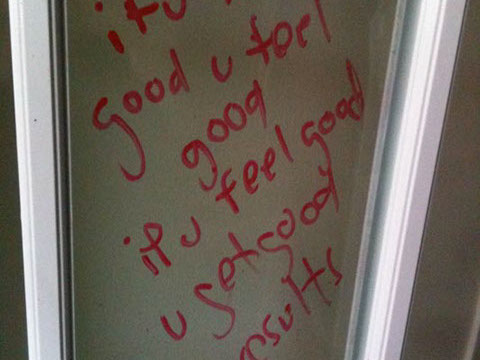 if u
good u feel
good
if u feel good
u get good
results